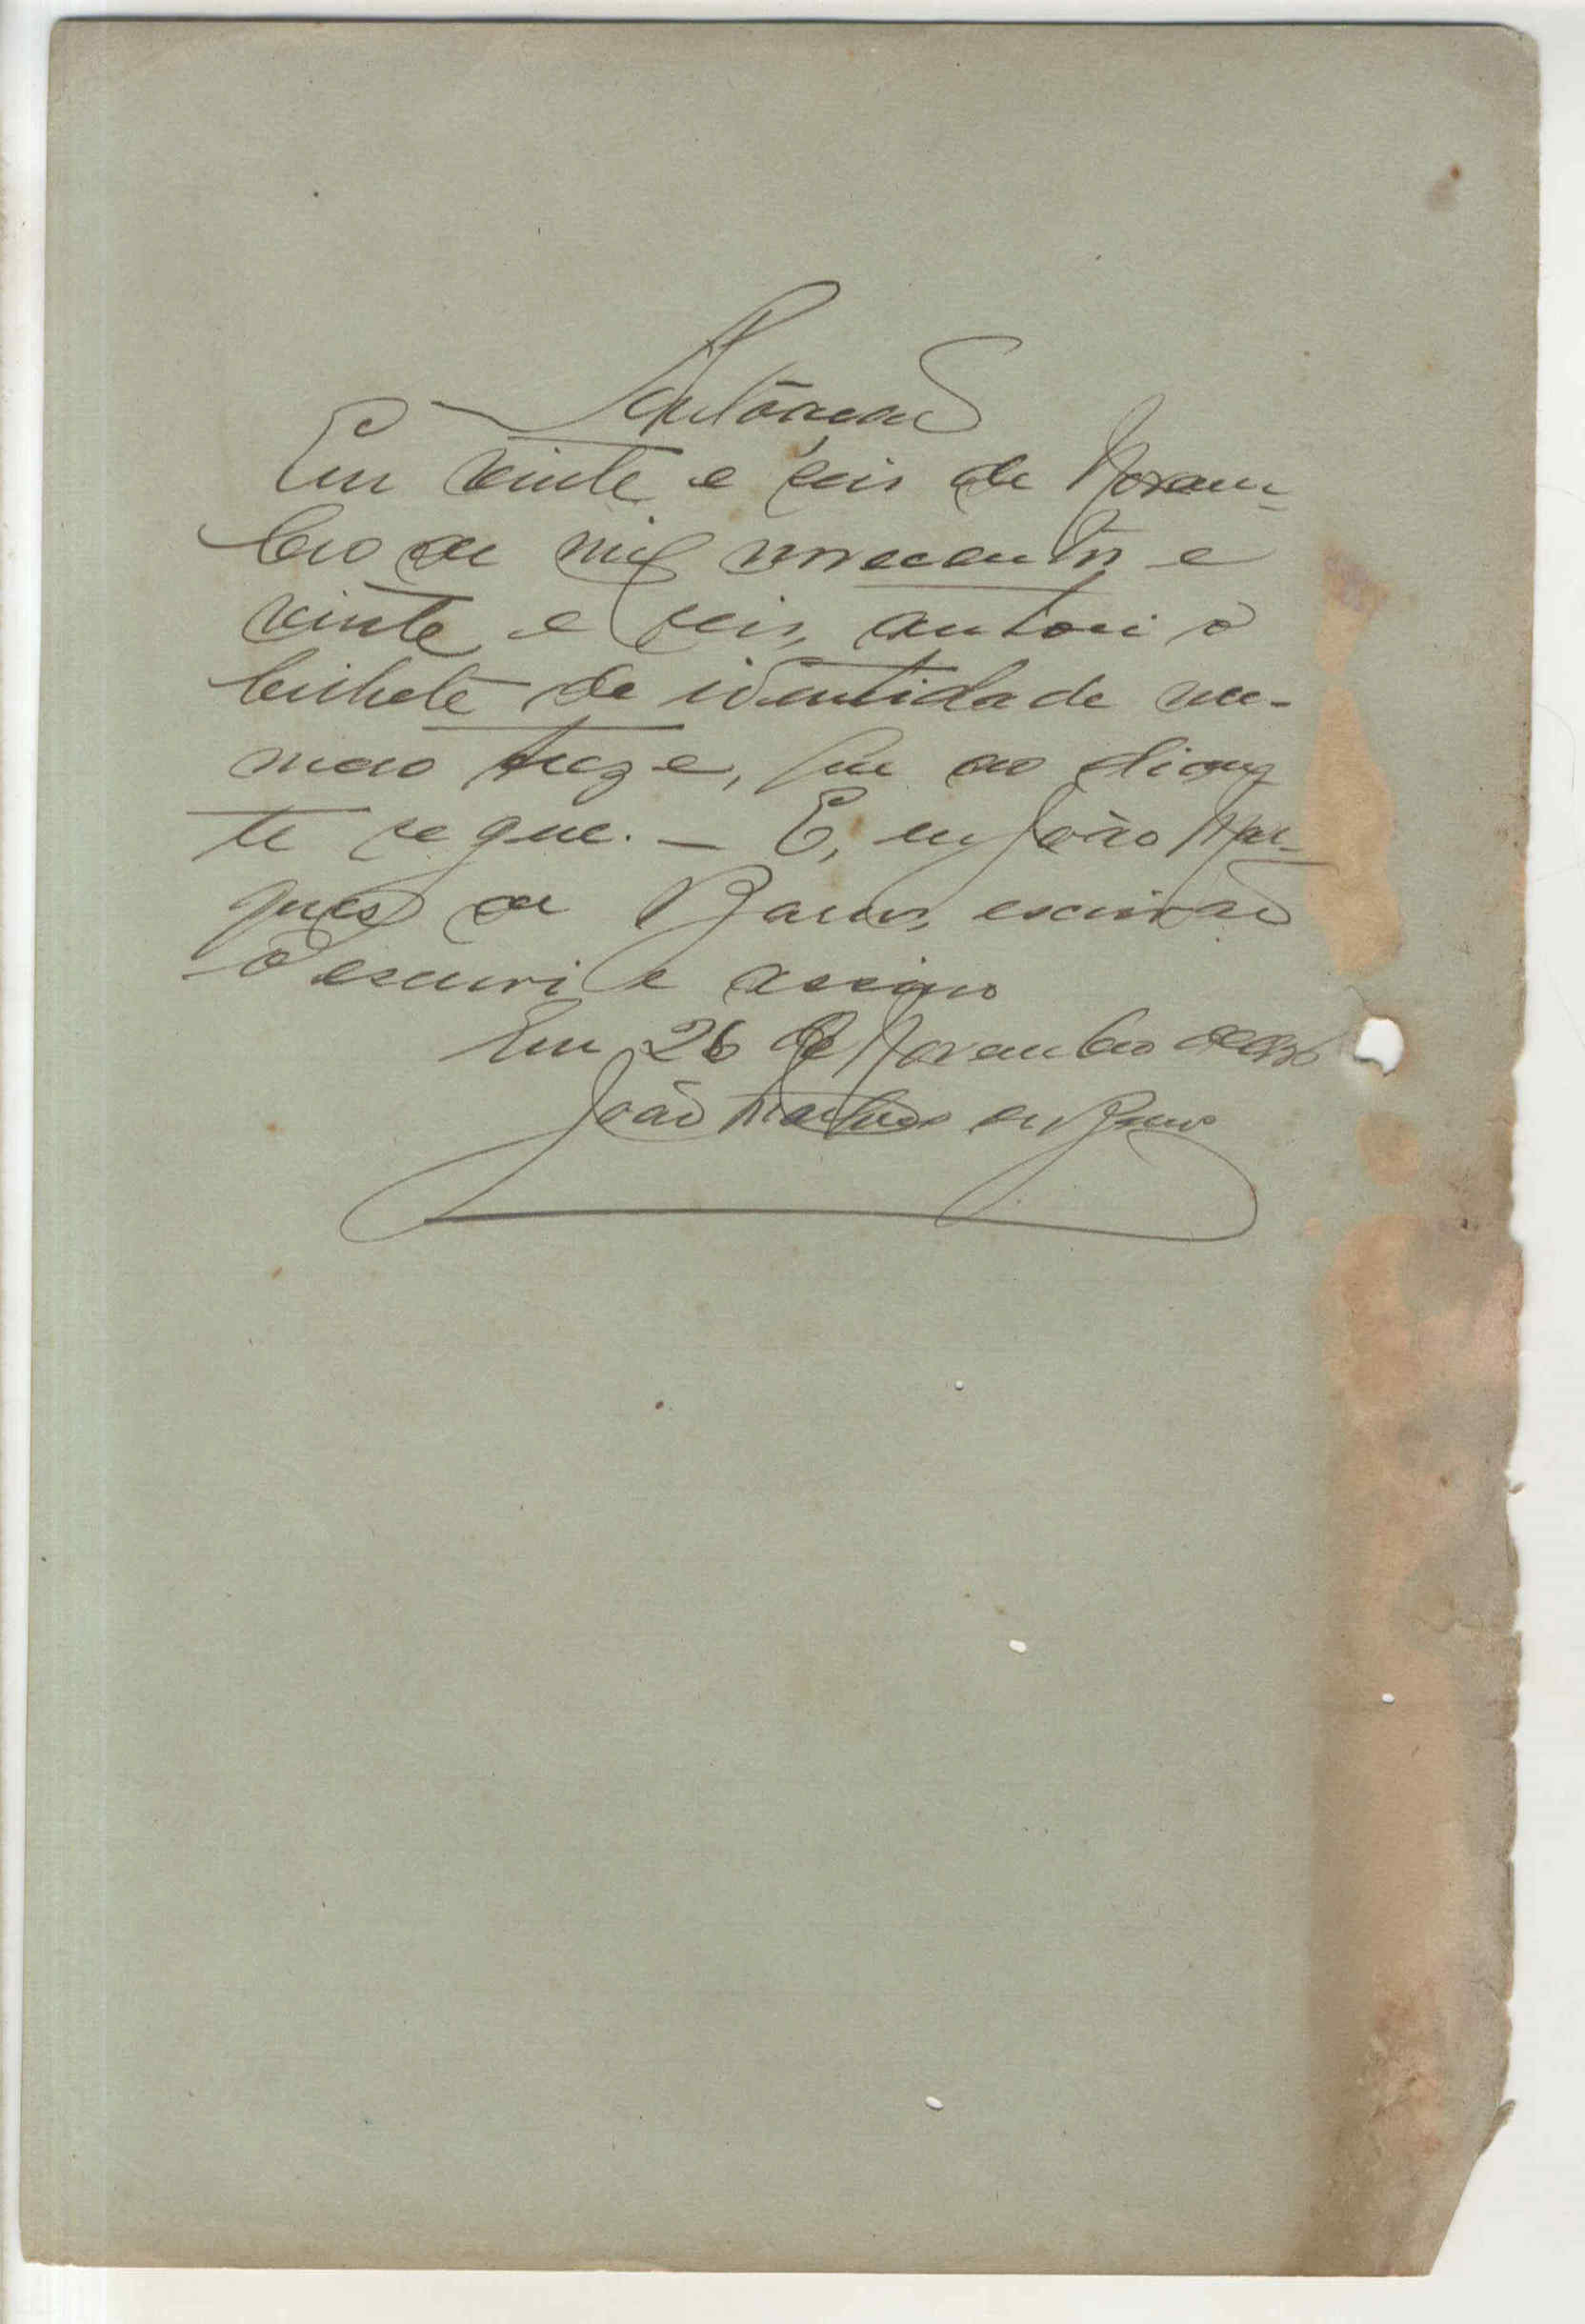 Autoação
Em vinte e seis de Novem-
bro de mil novecentos e
vinte e seis, autoei o
bilhete de identidade nu-
mero treze, que ao dian-
te segue. — E, eu João Mar-
ques de Barros, escrivão
o escrevi e assino
Em 26 de Novembro de 926
João Marques de Barros